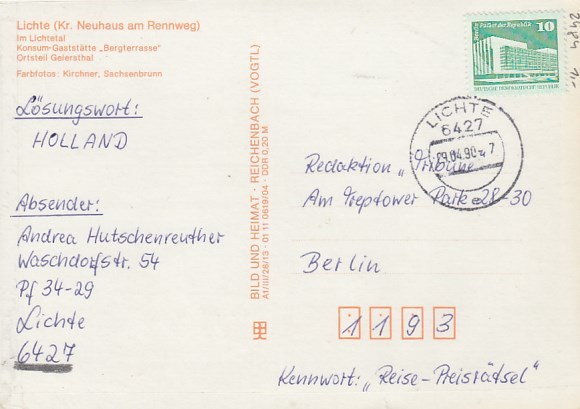 Lichte (Kr. Neuhaus am Rennweg)
Im Lichtetal
Konsum-Gaststätte „Bergterrasse"
Ortsteil Geiersthal
Farbfotos: Kirchner, Sachsenbrunn
Lösungswort:
HOLLAND
Absender:
Andrea Hutschenreuther
Waschdorfstr. 54
Pf 34-29
Lichte
6427
BILD UND HEIMAT · REICHENBACH (VOGTL)
A1/III/26/13 · 01 11 0619/04 · DDR 0,20 M
10
Palast der Republik
DEUTSCHE DEMOKRATISCHE REPUBLIK
2484 1,-
LICHTE
6427
09.04.90 - 7
e
Redaktion „Tribüne"
Am Treptower Park 28-30
Berlin
1193
Kennwort: „Reise-Preisrätsel"